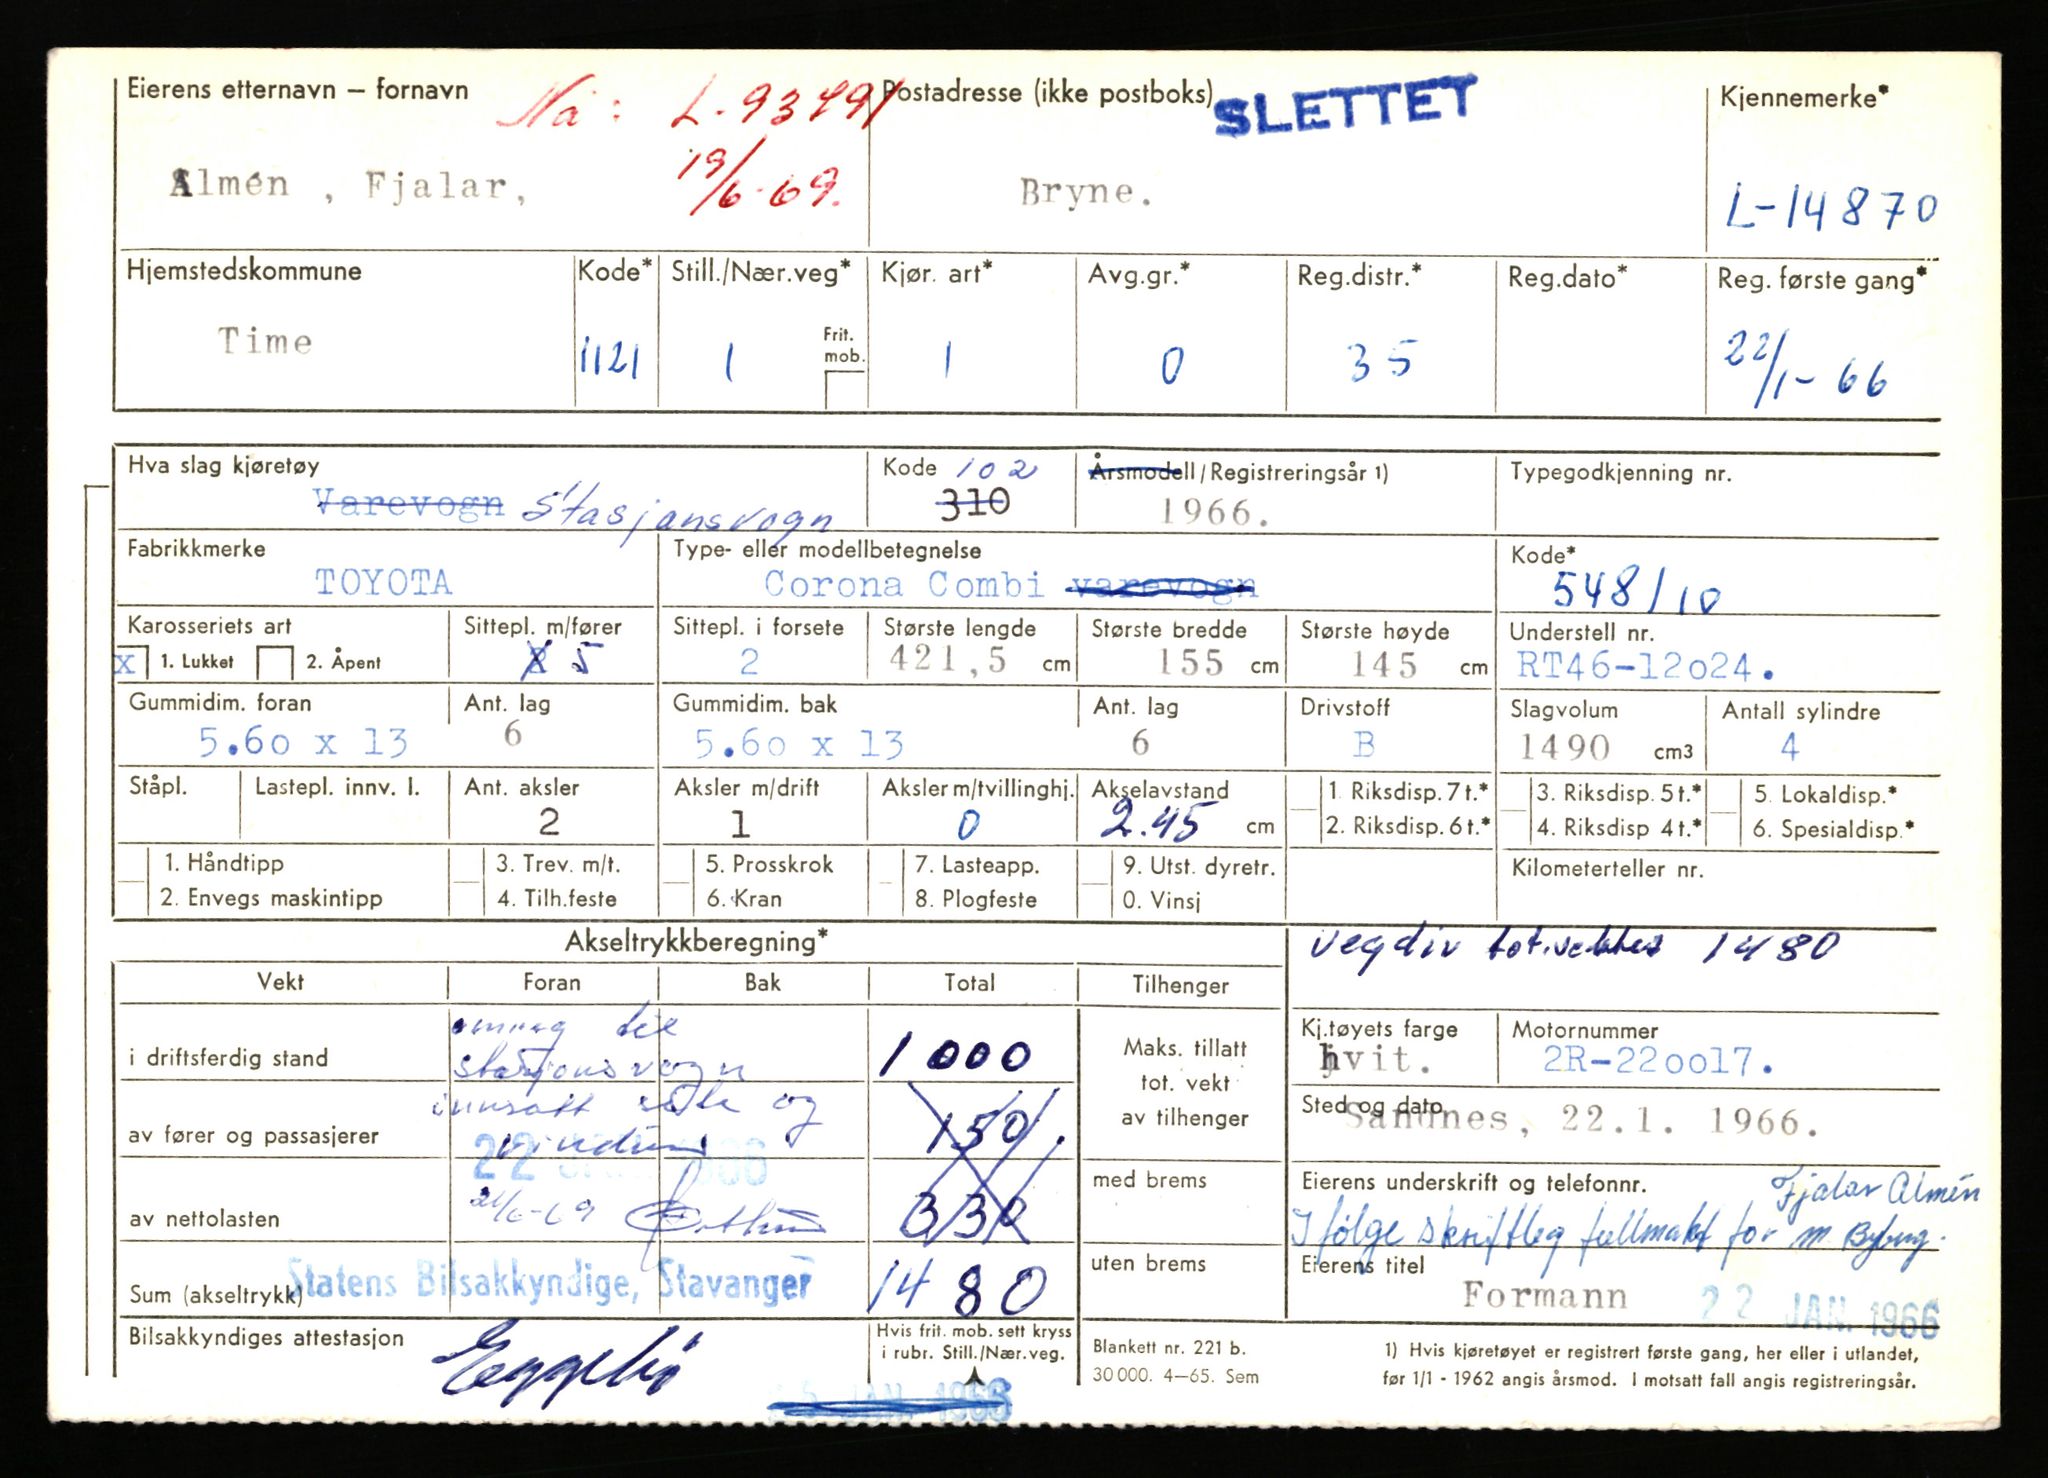 Eierens etternavn – fornavn Nå: L-93791 Postadresse (ikke postboks) SLETTET Kjennemerke*
Almén , Fjalar, 19/6-69. Bryne. L-14870
Hjemstedskommune Kode* Still./Nær.veg* Kjør. art* Avg.gr.* Reg.distr.* Reg.dato* Reg. første gang*
Time 1121 1 Frit. mob. 1 0 35 22/1-66
Hva slag kjøretøy Kode 102 Årsmodell/Registreringsår 1) Typegodkjenning nr.
Varevogn Stasjonsvogn 310 1966.
Fabrikkmerke Type- eller modellbetegnelse Kode*
TOYOTA Corona Combi varevogn 548/10
Karosseriets art Sittepl. m/fører Sittepl. i forsete Største lengde Største bredde Største høyde Understell nr.
x 1. Lukket 2. Åpent 5 2 421,5 cm 155 cm 145 cm RT46-12o24.
Gummidim. foran Ant. lag Gummidim. bak Ant. lag Drivstoff Slagvolum Antall sylindre
5.6o x 13 6 5.6o x 13 6 B 1490 cm3 4
Ståpl. Lastepl. innv. l. Ant. aksler Aksler m/drift Aksler m/tvillinghj. Akselavstand 1. Riksdisp. 7 t.* 3. Riksdisp. 5 t.* 5. Lokaldisp.*
2 1 0 2.45 cm 2. Riksdisp. 6 t.* 4. Riksdisp 4 t.* 6. Spesialdisp.*
1. Håndtipp 3. Trev. m/t. 5. Prosskrok 7. Lasteapp. 9. Utst. dyretr. Kilometerteller nr.
2. Envegs maskintipp 4. Tilh.feste 6. Kran 8. Plogfeste 0. Vinsj
Akseltrykkberegning* vegdir tot.vekter 1480
Vekt Foran Bak Total Tilhenger
omreg til Kj.tøyets farge Motornummer
i driftsferdig stand stasjonsvogn 1000 Maks. tillatt tot. vekt av tilhenger hvit. 2R-22oo17.
innsatt sete og Sted og dato
av fører og passasjerer vinduer 150 Sandnes, 22.1. 1966.
22 JAN 1966
med brems Eierens underskrift og telefonnr. Fjalar Almén
av nettolasten 21/6-69 330 I følge skriftleg fullmakt for M. Byberg.
uten brems Eierens titel
Sum (akseltrykk) Statens Bilsakkyndige, Stavanger 1480 Formann 22 JAN. 1966
Bilsakkyndiges attestasjon Hvis frit. mob. sett kryss i rubr. Still./Nær.veg. Blankett nr. 221 b. 1) Hvis kjøretøyet er registrert første gang, her eller i utlandet,
30 000. 4–65. Sem før 1/1 - 1962 angis årsmod. I motsatt fall angis registreringsår.
JAN. 1966